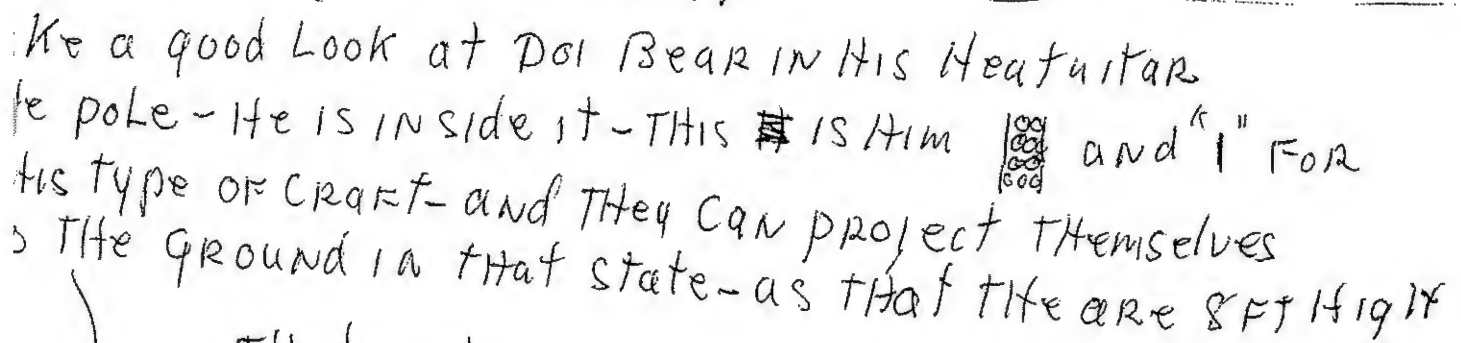 Ke a good Look at Dol BeaR IN HIS
le poLe - He IS INSIde It - THIS IS HIM and "1" FOR
HIS Type OF CRaFt - aNd THey CaN pROJect THemseLves
THe gROuNd IN tHat state - as tHat THe aRe 8 Ft HIgH